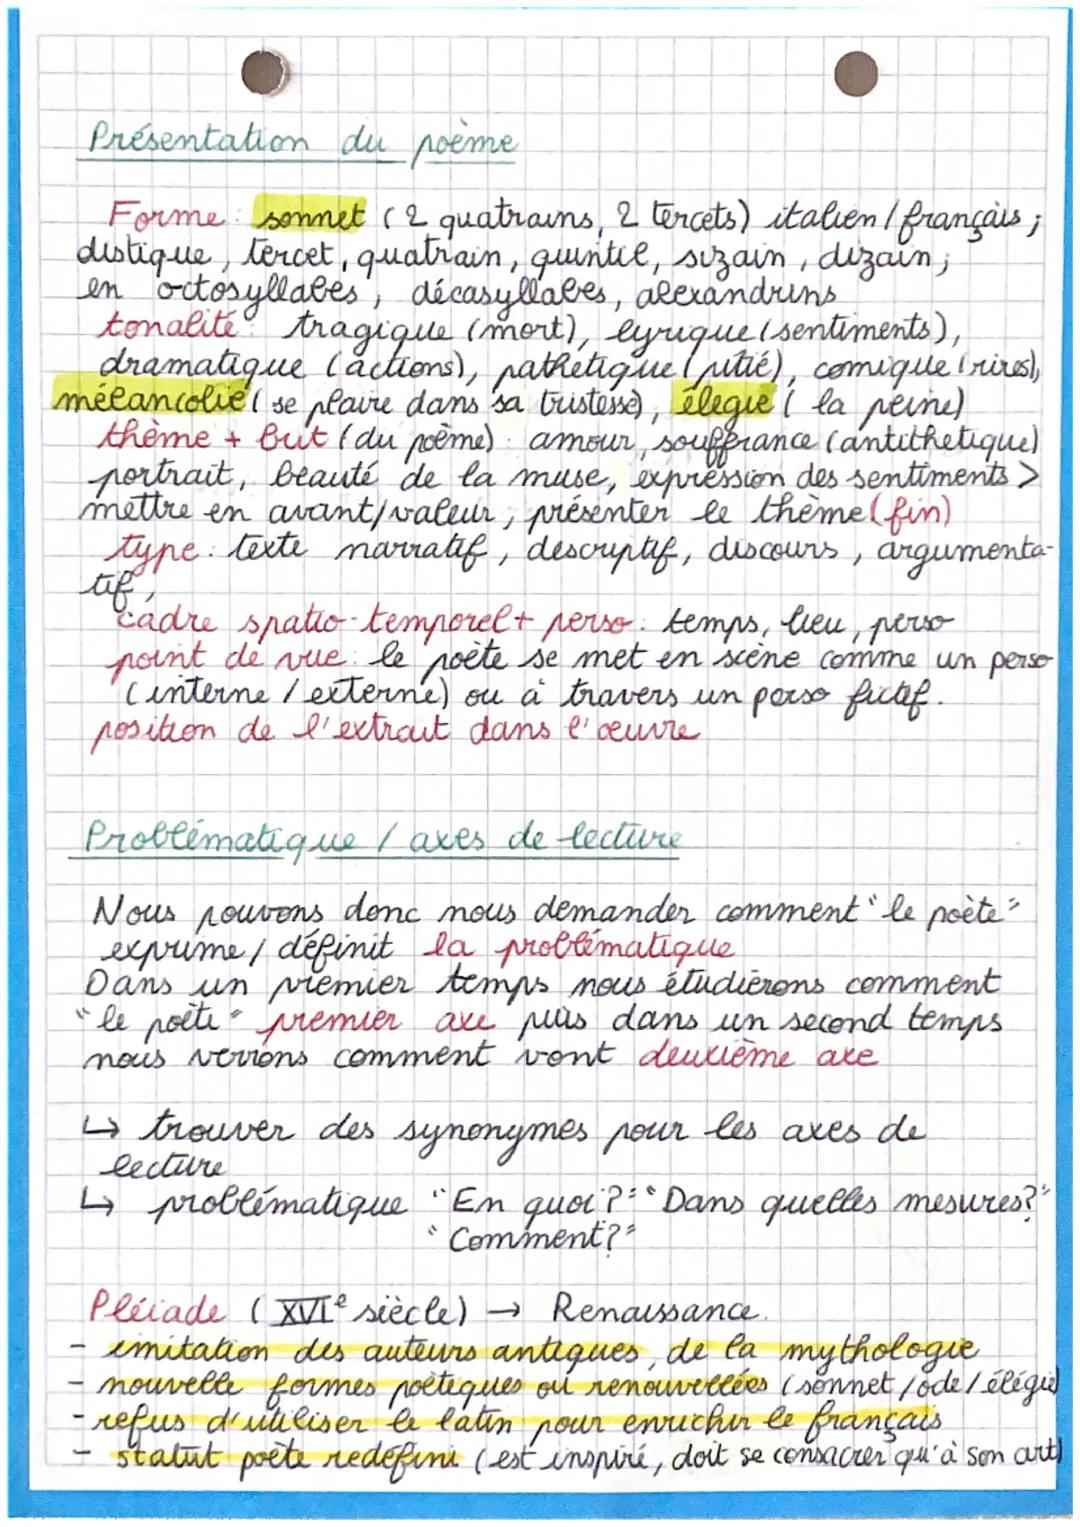 Présentation du poème
Forme : sonnet (2 quatrains, 2 tercets) italien / français ;
distique, tercet, quatrain, quintil, sizain, dizain ;
en octosyllabes, décasyllabes, alexandrins
tonalité : tragique (mort), lyrique (sentiments),
dramatique (actions), pathétique (pitié), comique (rires),
mélancolie (se plaire dans sa tristesse), élégie (la peine)
thème + but (du poème) : amour, souffrance (antithétique)
portrait, beauté de la muse, expression des sentiments >
mettre en avant/valeur, présenter le thème (fin)
type : texte narratif, descriptif, discours, argumenta-
tif,
cadre spatio-temporel + perso : temps, lieu, perso
point de vue : le poète se met en scène comme un perso
(interne / externe) ou à travers un perso fictif.
position de l'extrait dans l'œuvre
Problématique / axes de lecture
Nous pouvons donc nous demander comment "le poète"
exprime / définit la problématique
Dans un premier temps nous étudierons comment
"le poète" premier axe puis dans un second temps
nous verrons comment vont deuxième axe
↳ trouver des synonymes pour les axes de
lecture
↳ problématique "En quoi ?" "Dans quelles mesures ?"
"Comment ?"
Pléiade (XVIe siècle) → Renaissance.
- imitation des auteurs antiques, de la mythologie
- nouvelle formes poétiques ou renouvellées (sonnet / ode / élégie)
- refus d'utiliser le latin pour enrichir le français
- statut poète redéfini (est inspiré, doit se consacrer qu'à son art)